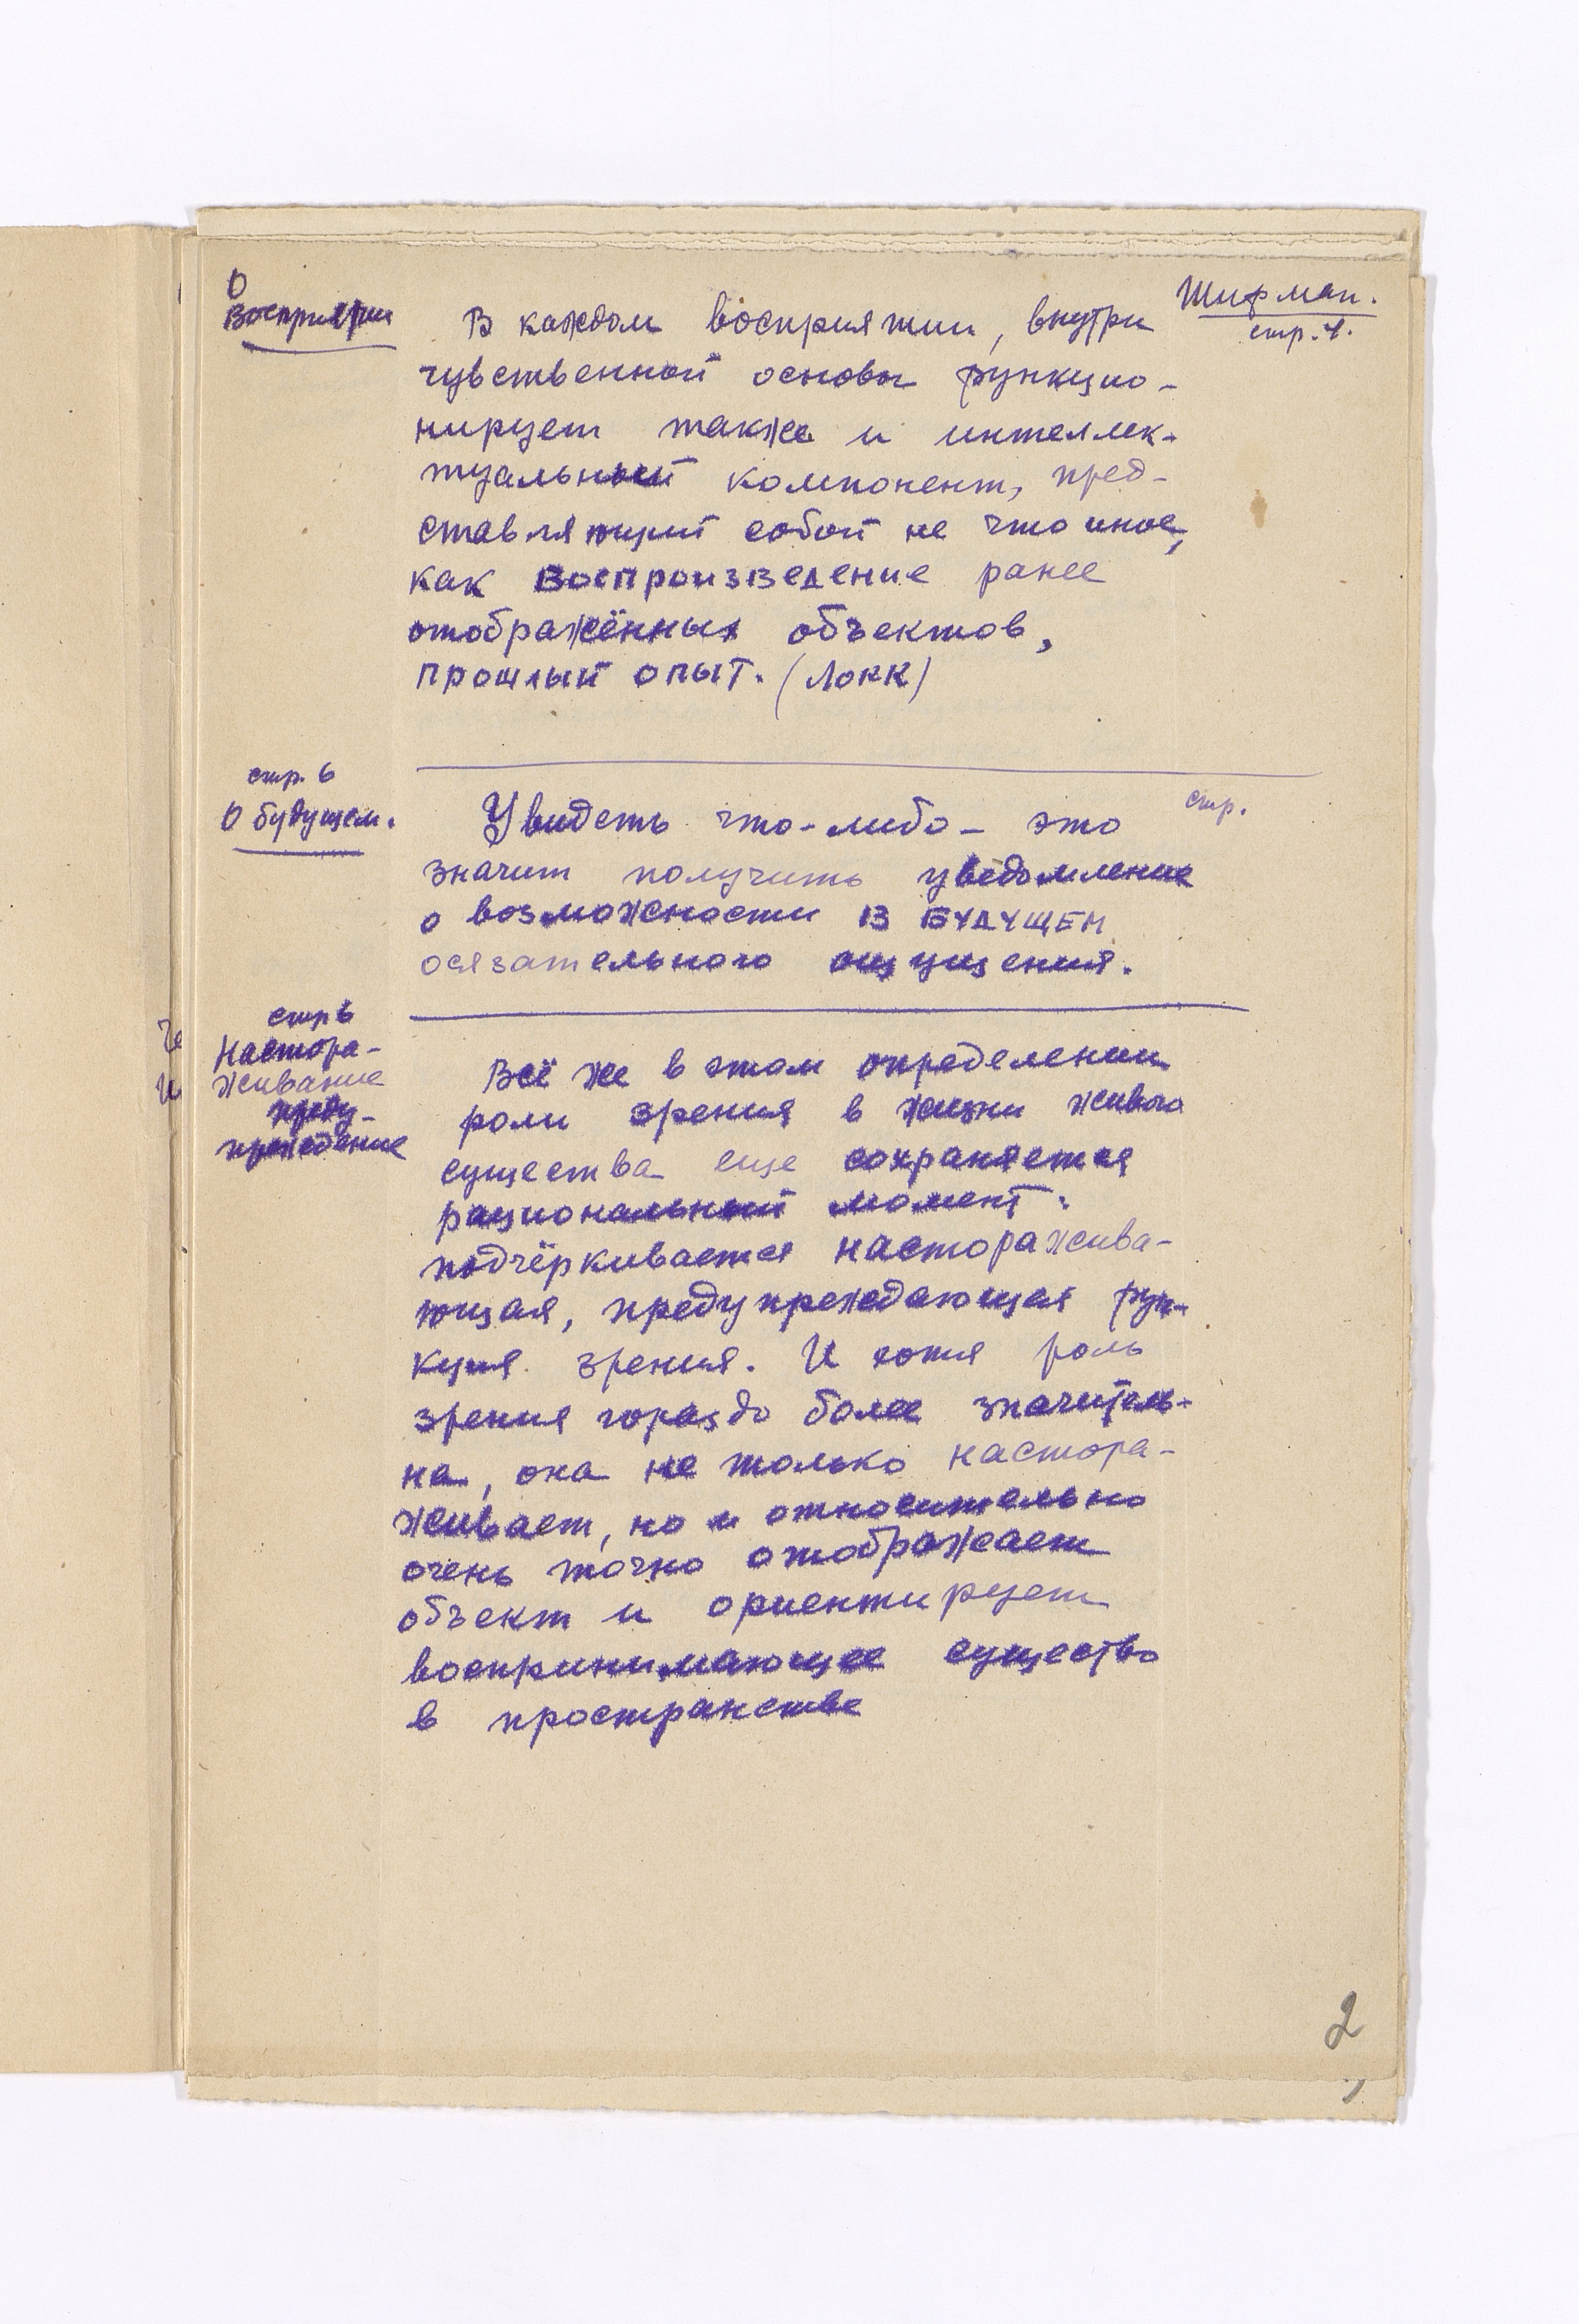 О
Восприятии
Шифман.
стр. 4.
В каждом восприятии, внутри
чувственной основы функцио-
нирует также и интеллек-
туальный компонент, пред-
ставляющий собой не что иное,
как воспроизведение ранее
отображённых объектов,
прошлый опыт. (Локк)
стр. 6
О будущем.
стр.
Увидеть что-либо – это
значит получить уведомление
о возможности в БУДУЩЕМ
осязательного ощущения.
стр 6
Настора-
живание
преду-
преждение
Всё же в этом определении
роли зрения в жизни живого
существа еще сохраняется
рациональный момент:
подчёркивается насторажива-
ющая, предупреждающая фун-
кция зрения. И хотя роль
зрения гораздо более значитель-
на, она не только настора-
живает, но и относительно
очень точно отображает
объект и ориентирует
воспринимающее существо
в пространстве
2